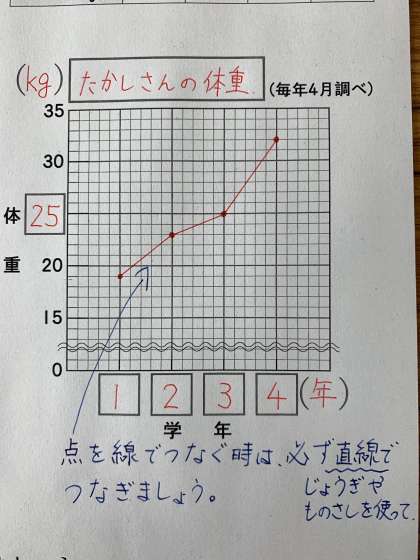 (kg) たかしさんの体重 (毎年4月調べ)
35
30
体重
25
20
15
0
1 2 3 4 (年)
学年
点を線でつなぐ時は、必ず直線で
つなぎましょう。
じょうぎや
ものさしを使って。